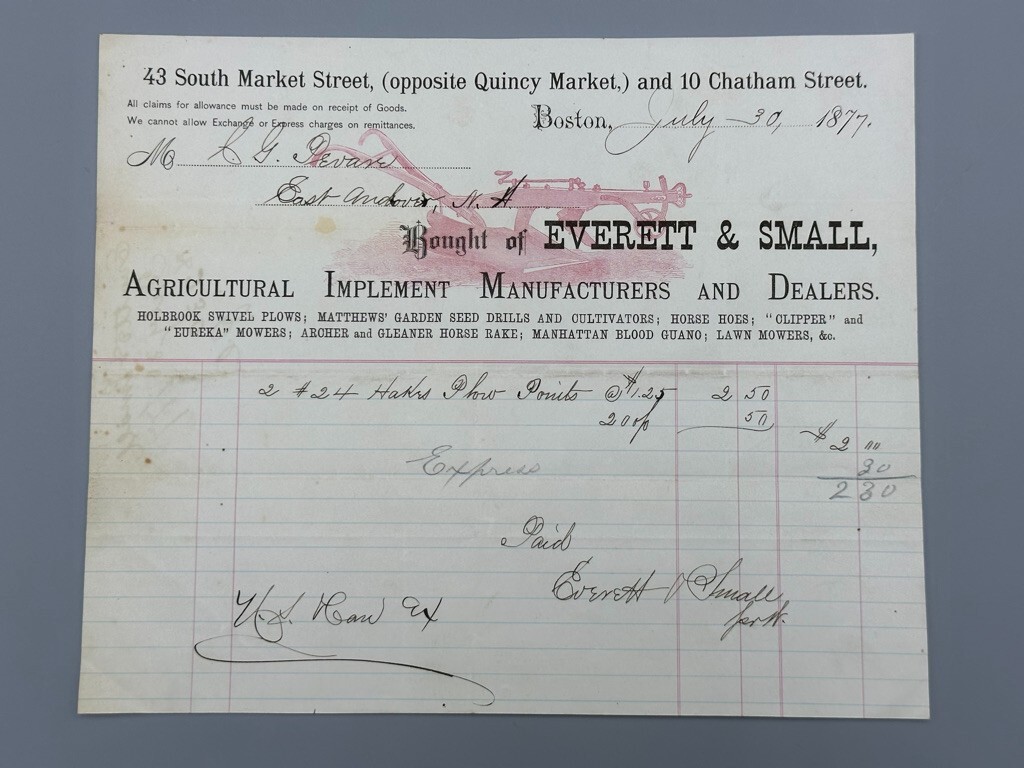 43 South Market Street, (opposite Quincy Market,) and 10 Chatham Street.
All claims for allowance must be made on receipt of Goods.
We cannot allow Exchange or Express charges on remittances.
Boston, July 30, 1877.
M C. G. Pevare
East Andover, N. H.
Bought of EVERETT & SMALL,
AGRICULTURAL IMPLEMENT MANUFACTURERS AND DEALERS.
HOLBROOK SWIVEL PLOWS; MATTHEWS' GARDEN SEED DRILLS AND CULTIVATORS; HORSE HOES; "CLIPPER" and
"EUREKA" MOWERS; ARCHER and GLEANER HORSE RAKE; MANHATTAN BLOOD GUANO; LAWN MOWERS, &c.
2 #24 Plow Points @ $1.25 2 50
20 off 50
$2 00
Express 30
2 30
Paid
Everett & Small
per W.